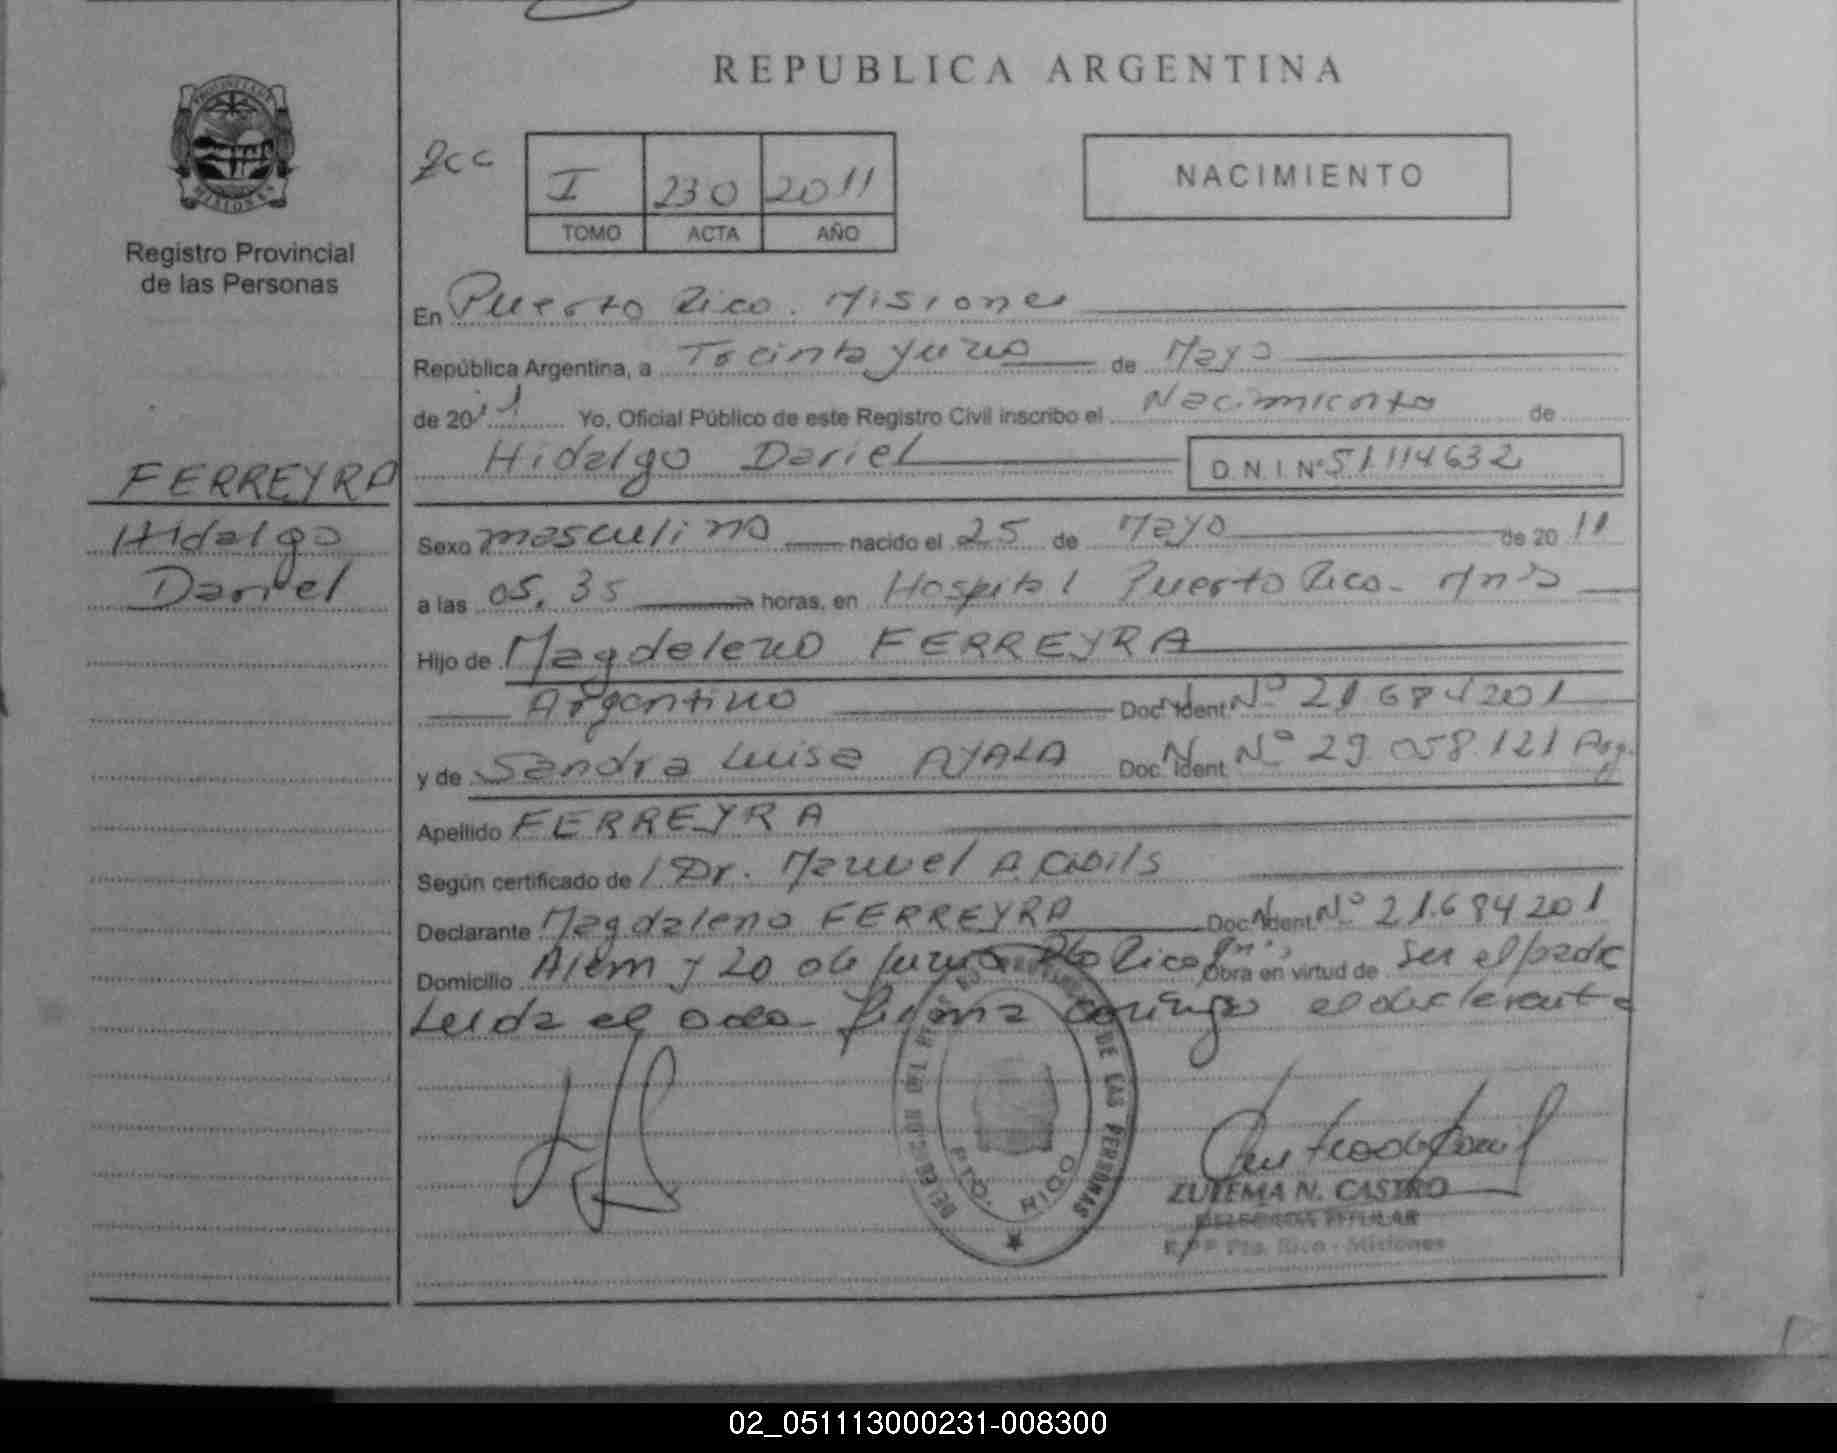 REPUBLICA ARGENTINA
PROVINCIA DE MISIONES
Registro Provincial
de las Personas
I 230 2011
TOMO ACTA AÑO
NACIMIENTO
En Puerto Rico. Misiones
República Argentina, a Treinta y uno de Mayo
de 2011 Yo, Oficial Público de este Registro Civil inscribo el Nacimiento de
Hidalgo Dariel D.N.I. Nº 51.114632
FERREYRA
Hidalgo
Dariel
Sexo masculino nacido el 25 de Mayo de 2011
a las 05,35 horas, en Hospital Puerto Rico - Mns
Hijo de Magdaleno FERREYRA
Argentino Doc. Ident. Nº 21 684 201
y de Sandra Luisa AYALA Doc. Ident. Nº 29.058.121 Arg.
Apellido FERREYRA
Según certificado de Dr. Manuel A.
Declarante Magdaleno FERREYRA Doc. Ident. Nº 21.684 201
Domicilio Alem y 20 de Junio Pto Rico Obra en virtud de Ser el padre
Leida el acta firma conmigo el declarante
DE LAS PERSONAS
PTO. RICO
ZULEMA N. CASTRO
DELEGADA TITULAR
Pto. Rico - Misiones
02_051113000231-008300